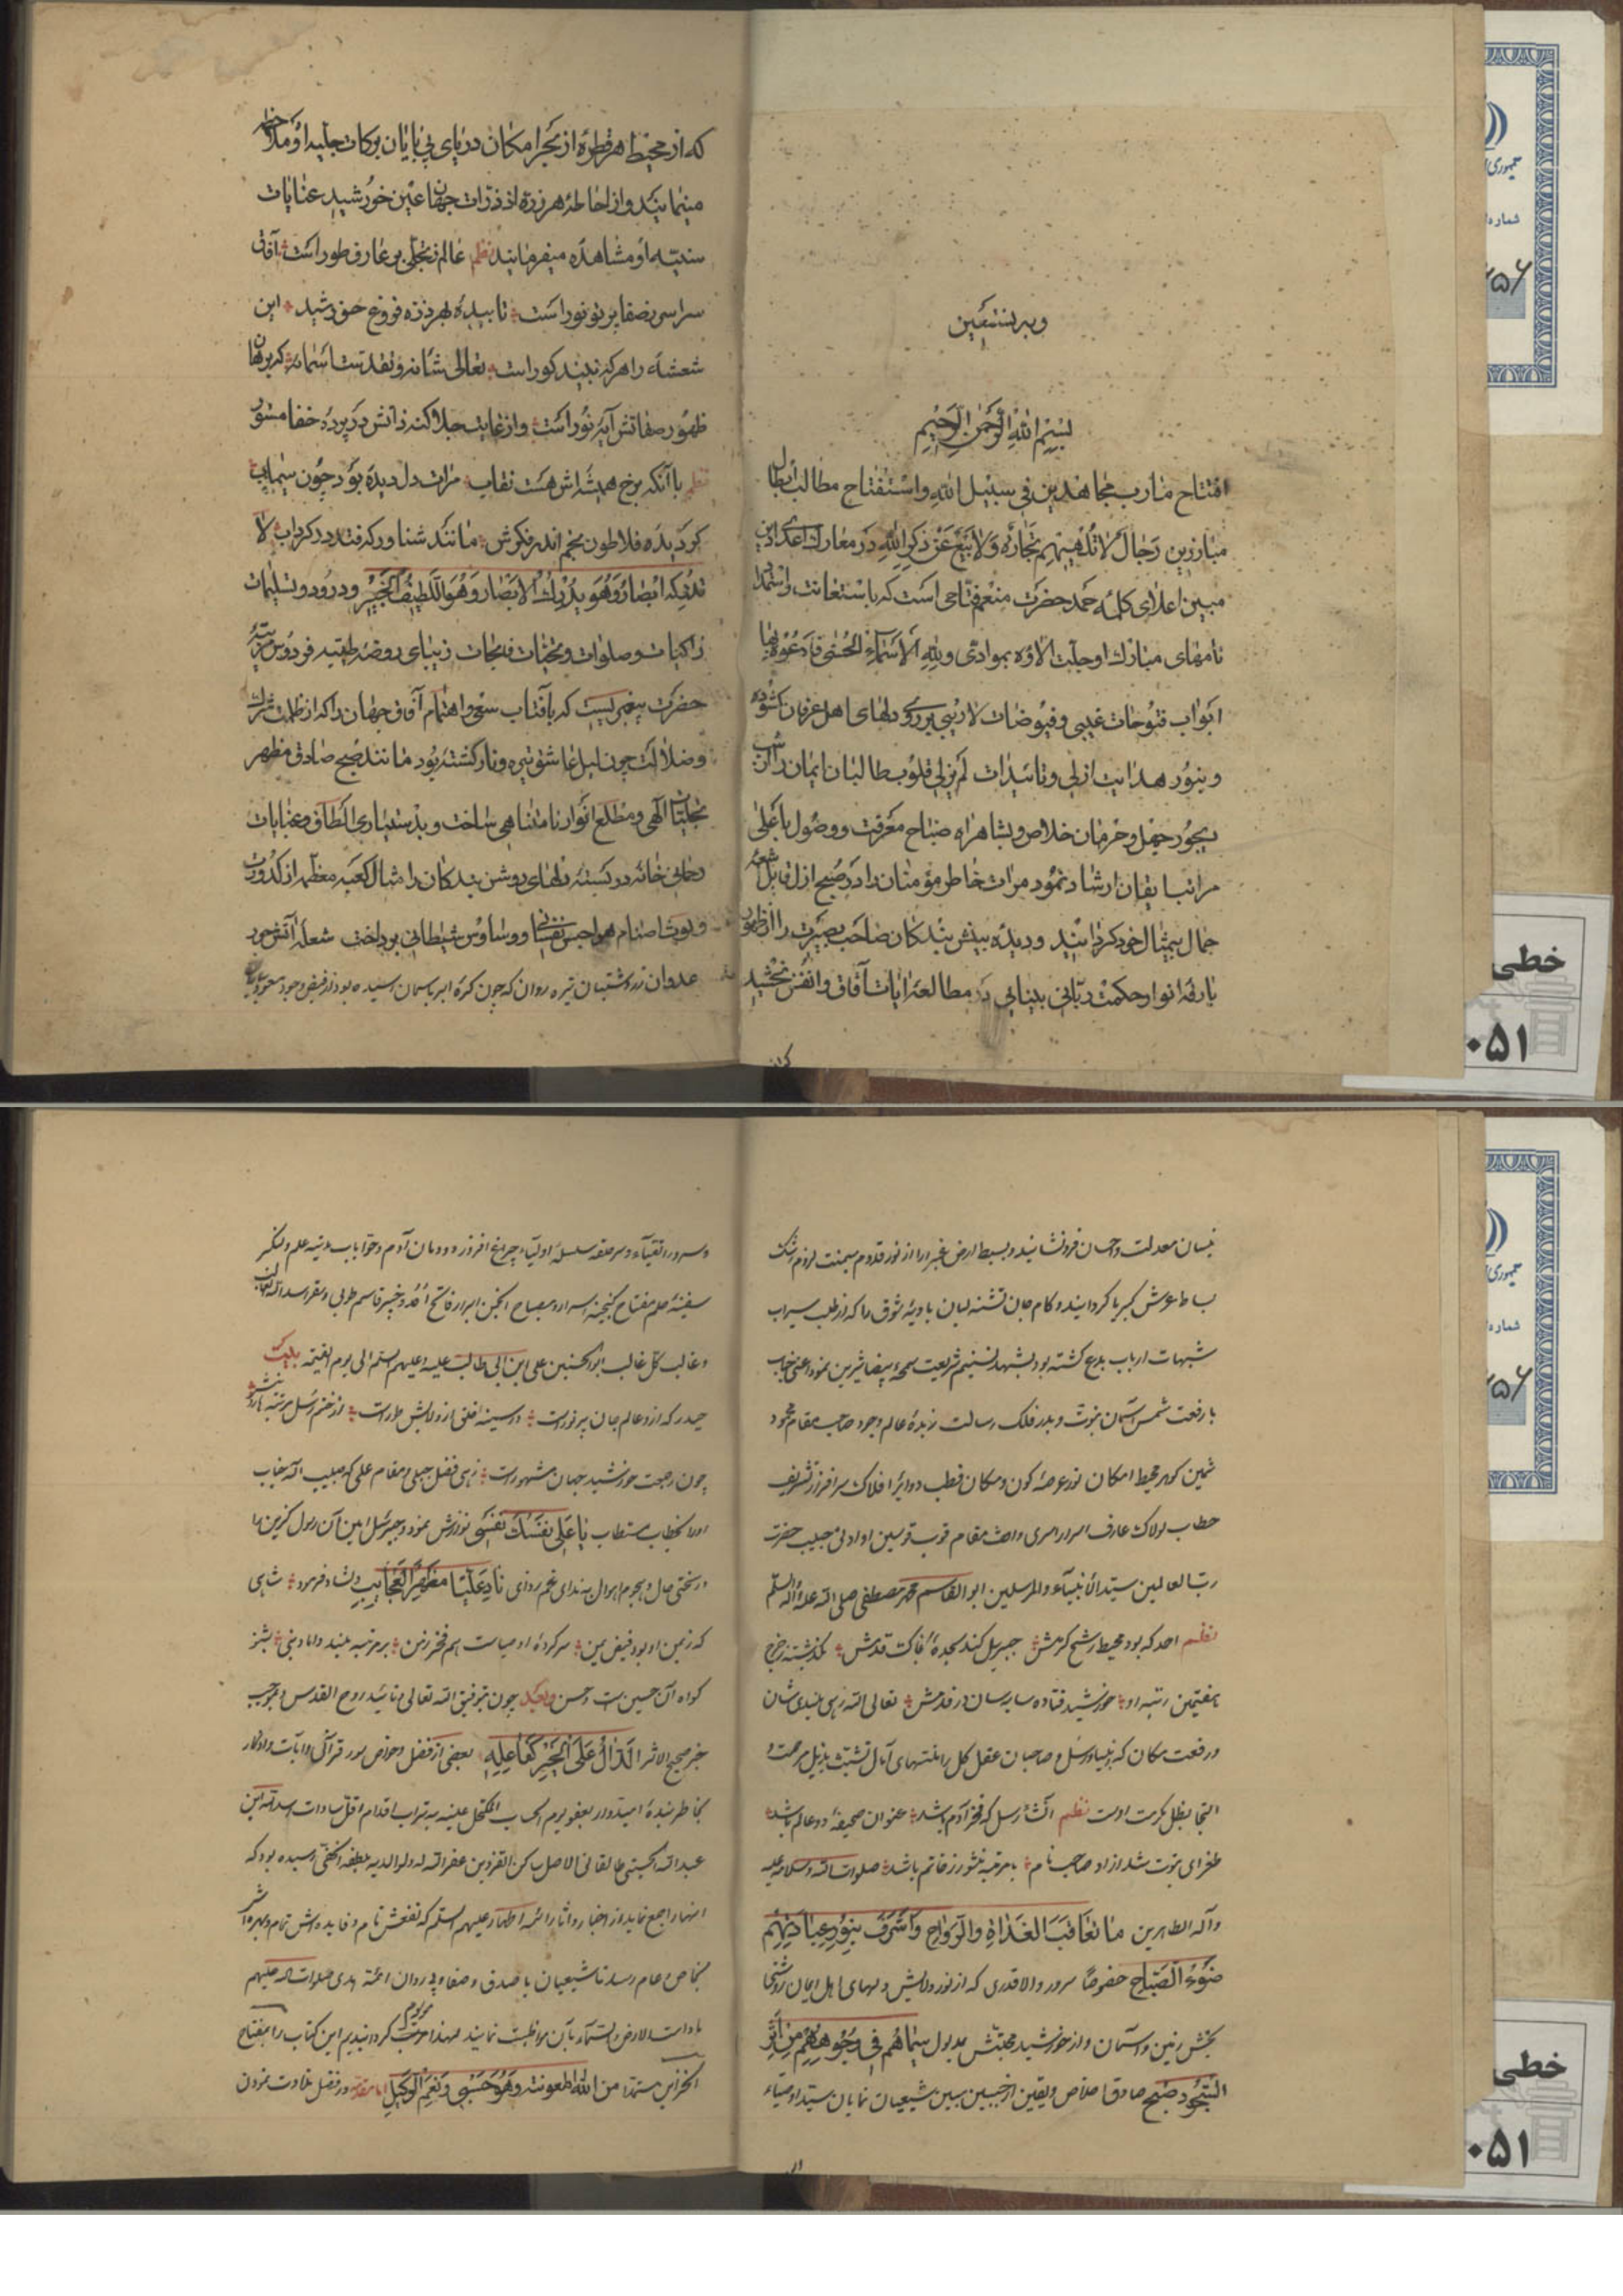 وبه نستعین
بسم الله الرحمن الرحیم
افتتاح مارب مجاهدین فی سبیل الله واستفتاح مطالب ابطال
مبارزین رجال لا تلهیهم تجارة ولا بیع عن ذکر الله در معارک اعدای دین
مبین اعلای کلمه حمد حضرت منعم فتاحی است که باستعانت واستمداد
نامهای مبارک او جلت الاؤه بموادی ولله الاسماء الحسنی فادعوه بها
ابواب فتوحات غیبی وفیوضات لاریبی بر روی دلهای اهل عرفان کشوده
وبنور هدایت ازلی وتائیدات لم یزلی قلوب طالبان ایمان را از شب
دیجور جهل وحرمان خلاص وبشاهراه صباح معرفت ووصول باعلی
مراتب ایقان ارشاد نمود مرات خاطر مؤمنان را در صبح ازل قابل شعه
جمال بیمثال خود کردانید ودیده بینش بندکان صاحب بصیرت را از ظهور
بارقه انوار حکمت ربانی بینایی در مطالعه ایات آفاق وانفس بخشید
که از محیط هر قطره از بحر امکان دریای بی پایان برکات جلیه او ملاحظه
مینمایند واز احاطه هر ذره از ذرات جهان عین خورشید عنایات
سنیه او مشاهده میفرمایند نظم عالم ز تجلی بر عارف طور است آفاق
سراسر بصفا پرتو نور است تابیده بهر ذره فروغ خورشید این
شعشه را هر که نبیند کور است تعالی شانه وتقدست اسمائه که برهان
ظهور صفاتش آیه نور است واز غایت جلا کنه ذاتش در پرده خفا مستور
نظم با آنکه برخ همیشه اش هست نقاب مرات دل دیده بود چون سیماب
کردیده فلاطون بخم اندر فکرش مانند شناور که فتد در کرداب لا
تدرکه الابصار وهو یدرک الابصار وهو اللطیف الخبیر ودرود وتسلیمات
زاکیات وصلوات وتحیات فتحات زیبای روضه طیبه فردوس مرتبه
حضرت پیغمبریست که بآفتاب سعی واهتمام آفاق جهان را که از ظلمت شرک
وضلالت چون لیل عاشق تیره وتار کشته بود مانند صبح صادق مظهر
تجلیات الهی ومطلع انوار نامتناهی ساخت وبدستیاری الطاف وعنایات
رحمانی خانه در بسته دلهای روشن بندکان را مثال کعبه معظمه از کدورت
ولوث اصنام هواجس نفسانی ووساوس شیطانی پرداخت شعله آتش جور
بساط عرش کبریا کردانید وکام جان تشنه لبان بادیه شوق را که از طلب سیراب
شبهات ارباب بدع کشته بود بشهد تسنیم شریعت سمحه بیضا شیرین نمود اعنی جناب
با رفعت شمس آسمان نبوت وبدر فلک رسالت زبده عالم وجود صاحب مقام محمود
ثمین کوهر محیط امکان نور عرصه کون ومکان قطب دوایر افلاک سرافراز تشریف
خطاب لولاک عارف اسرار اسری واصل مقام قوب قوسین او ادنی حبیب حضرت
رب العالمین سید الانبیاء والمرسلین ابو القاسم محمد مصطفی صلی الله علیه وآله وسلم
نظم احمد که بود محیط رشح کرمش جبریل کند سجده خاک قدمش
هفتمین رتبه او خورشید فتاده سایه سان در قدمش تعالی الله زهی بلندی شان
ورفعت مکان که انبیا ورسل وصاحبان عقل کل را منتهای آمال تشبث بذیل مرحمت و
التجا بظل مکرمت اوست نظم آن شاه رسل که فخر آدم باشد عنوان صحیفه دو عالم باشد
طغرای نبوت شد از او صاحب نام با مرتبه منشور ز خاتم باشد صلوات الله وسلامه علیه
وآله الطاهرین ما تعاقب الغداة والرواح واشرف بنور عبادتهم
ضوء الصباح خصوصا سرور والا قدری که از نور ولایش دلهای اهل ایمان روشنی
بخش زمین وآسمان واز خورشید محبتش مدلول سیماهم فی وجوههم من اثر
السجود صبح صادق اخلاص ویقین از جبین مبین شیعیان نمایان سید اوصیاء
وسرور اتقیاء وسر حلقه سلسله اولیاء چراغ افروز دودمان آدم وحوا باب مدینه علم ولنکر
سفینه حلم مفتاح کنجینه اسرار ومصباح انجمن ابرار فاتح احد وخیبر قاسم طوبی وسقر اسد الله الغالب
وغالب کل غالب ابو الحسنین علی ابن ابی طالب علیه وعلیهم السلم الی یوم القیمه بیت
حیدر که ازو عالم جان پر نور است در سینه
چون رجعت خورشید جهان مشهور است زهی فضل جلی ومقام علی که حبیب اله بخباب
اورا بخطاب مستطاب یا علی نفسک نفسی نوازش نمود وجبرئیل امین آن رسول کزین را
در سختی حال وهجوم اهوال بندای غم زدای ناد علیا مظهر العجایب دلشاد فرمود شاهی
که زمین او بود فیض یمین
کواه آن حسین ست وحسن وبعد چون بتوفیق الله تعالی وتائید روح القدس وبموجب
خبر صحیح الاثر الدال علی الخیر کفاعله بعضی از فضل وخواص سور قرآنی وآیات واذکار
بخاطر بنده امیدوار بعفو یوم الحساب المکتحل عینیه بتراب اقدام اقل سادات
عبد الله الحسینی طالقانی الاصل ساکن القزوین غفر الله له ولوالدیه بلطفه الخفی رسیده بود که
انها را جمع نماید از اخبار واثار ائمه اطهار علیهم السلم که نفعش تام وفایده اش تمام وبهره اش
بخاص وعام رسد تا شیعیان با صدق وصفا وپیروان ائمه هدی صلوات الله علیهم
ما دامت الارض والسماء بآن مواظبت نمایند لهذا موسوم کردانیدیم این کتاب را بمفتاح
الخزاین مستمدا من الله المعونت وهو حسبی ونعم الوکیل اما مقدمه در فضل تلاوت نمودن
جمهوری
شماره
خطی
۰۵۱
جمهوری
شماره
خطی
۰۵۱